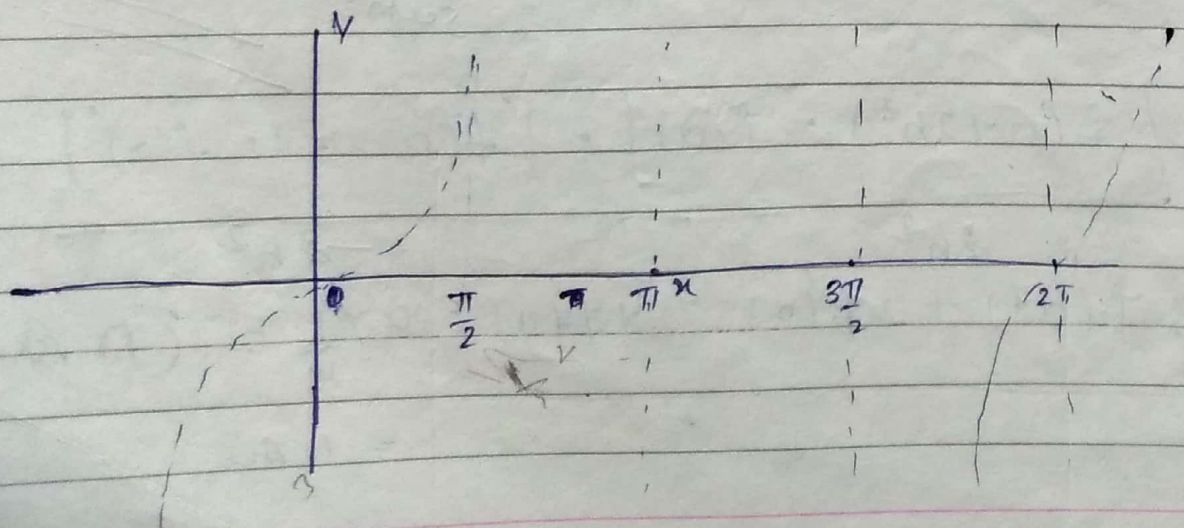 0 π/2 π π x 3π/2 2π